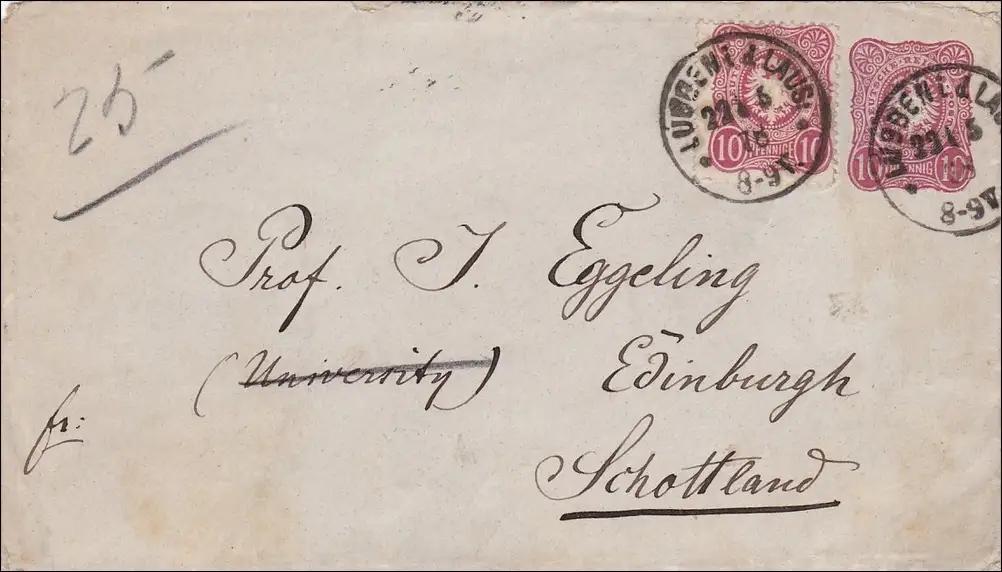 25
LÜBBEN I. d. LAUS.
8-9V.
10 PFENNIG 10
LÜBBEN I. d. LAUS
8-9V.
10 PFENNIG 10
Prof. J. Eggeling
(University) Edinburgh
fr:
Schottland